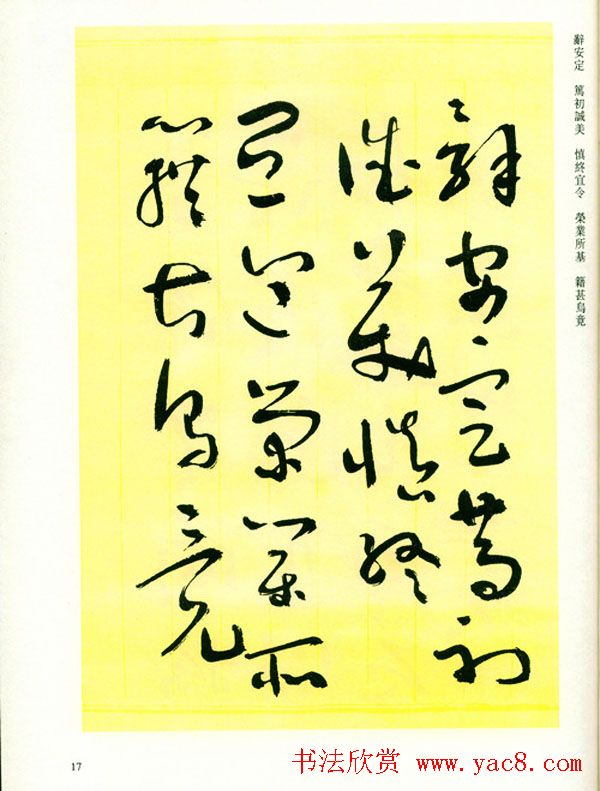 辭安定　篤初誠美　慎終宜令　榮業所基　籍甚烏竟
辭安定篤初
誠美慎終
宜令榮業所
籍甚烏竟
17
书法欣赏 www.yac8.com